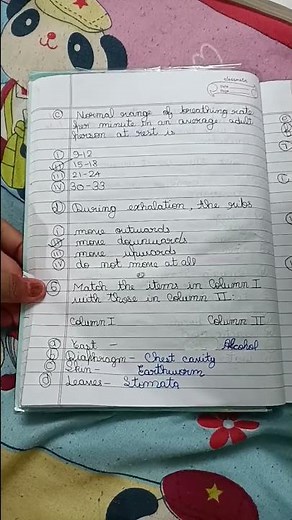 classmate
Date
Page
(c) Normal range of breathing rate
per minute in an average adult
person at rest is
(i) 9-12
(ii) 15-18
(iii) 21-24
(iv) 30-33
(d) During exhalation, the ribs
(i) move outwards
(ii) move downwards
(iii) move upwards
(iv) do not move at all
(5) Match the items in Column I
with those in Column II.
Column I Column II
(a) Yeast - Alcohol
(b) Diaphragm - Chest cavity
(c) Skin - Earthworm
(d) Leaves - Stomata